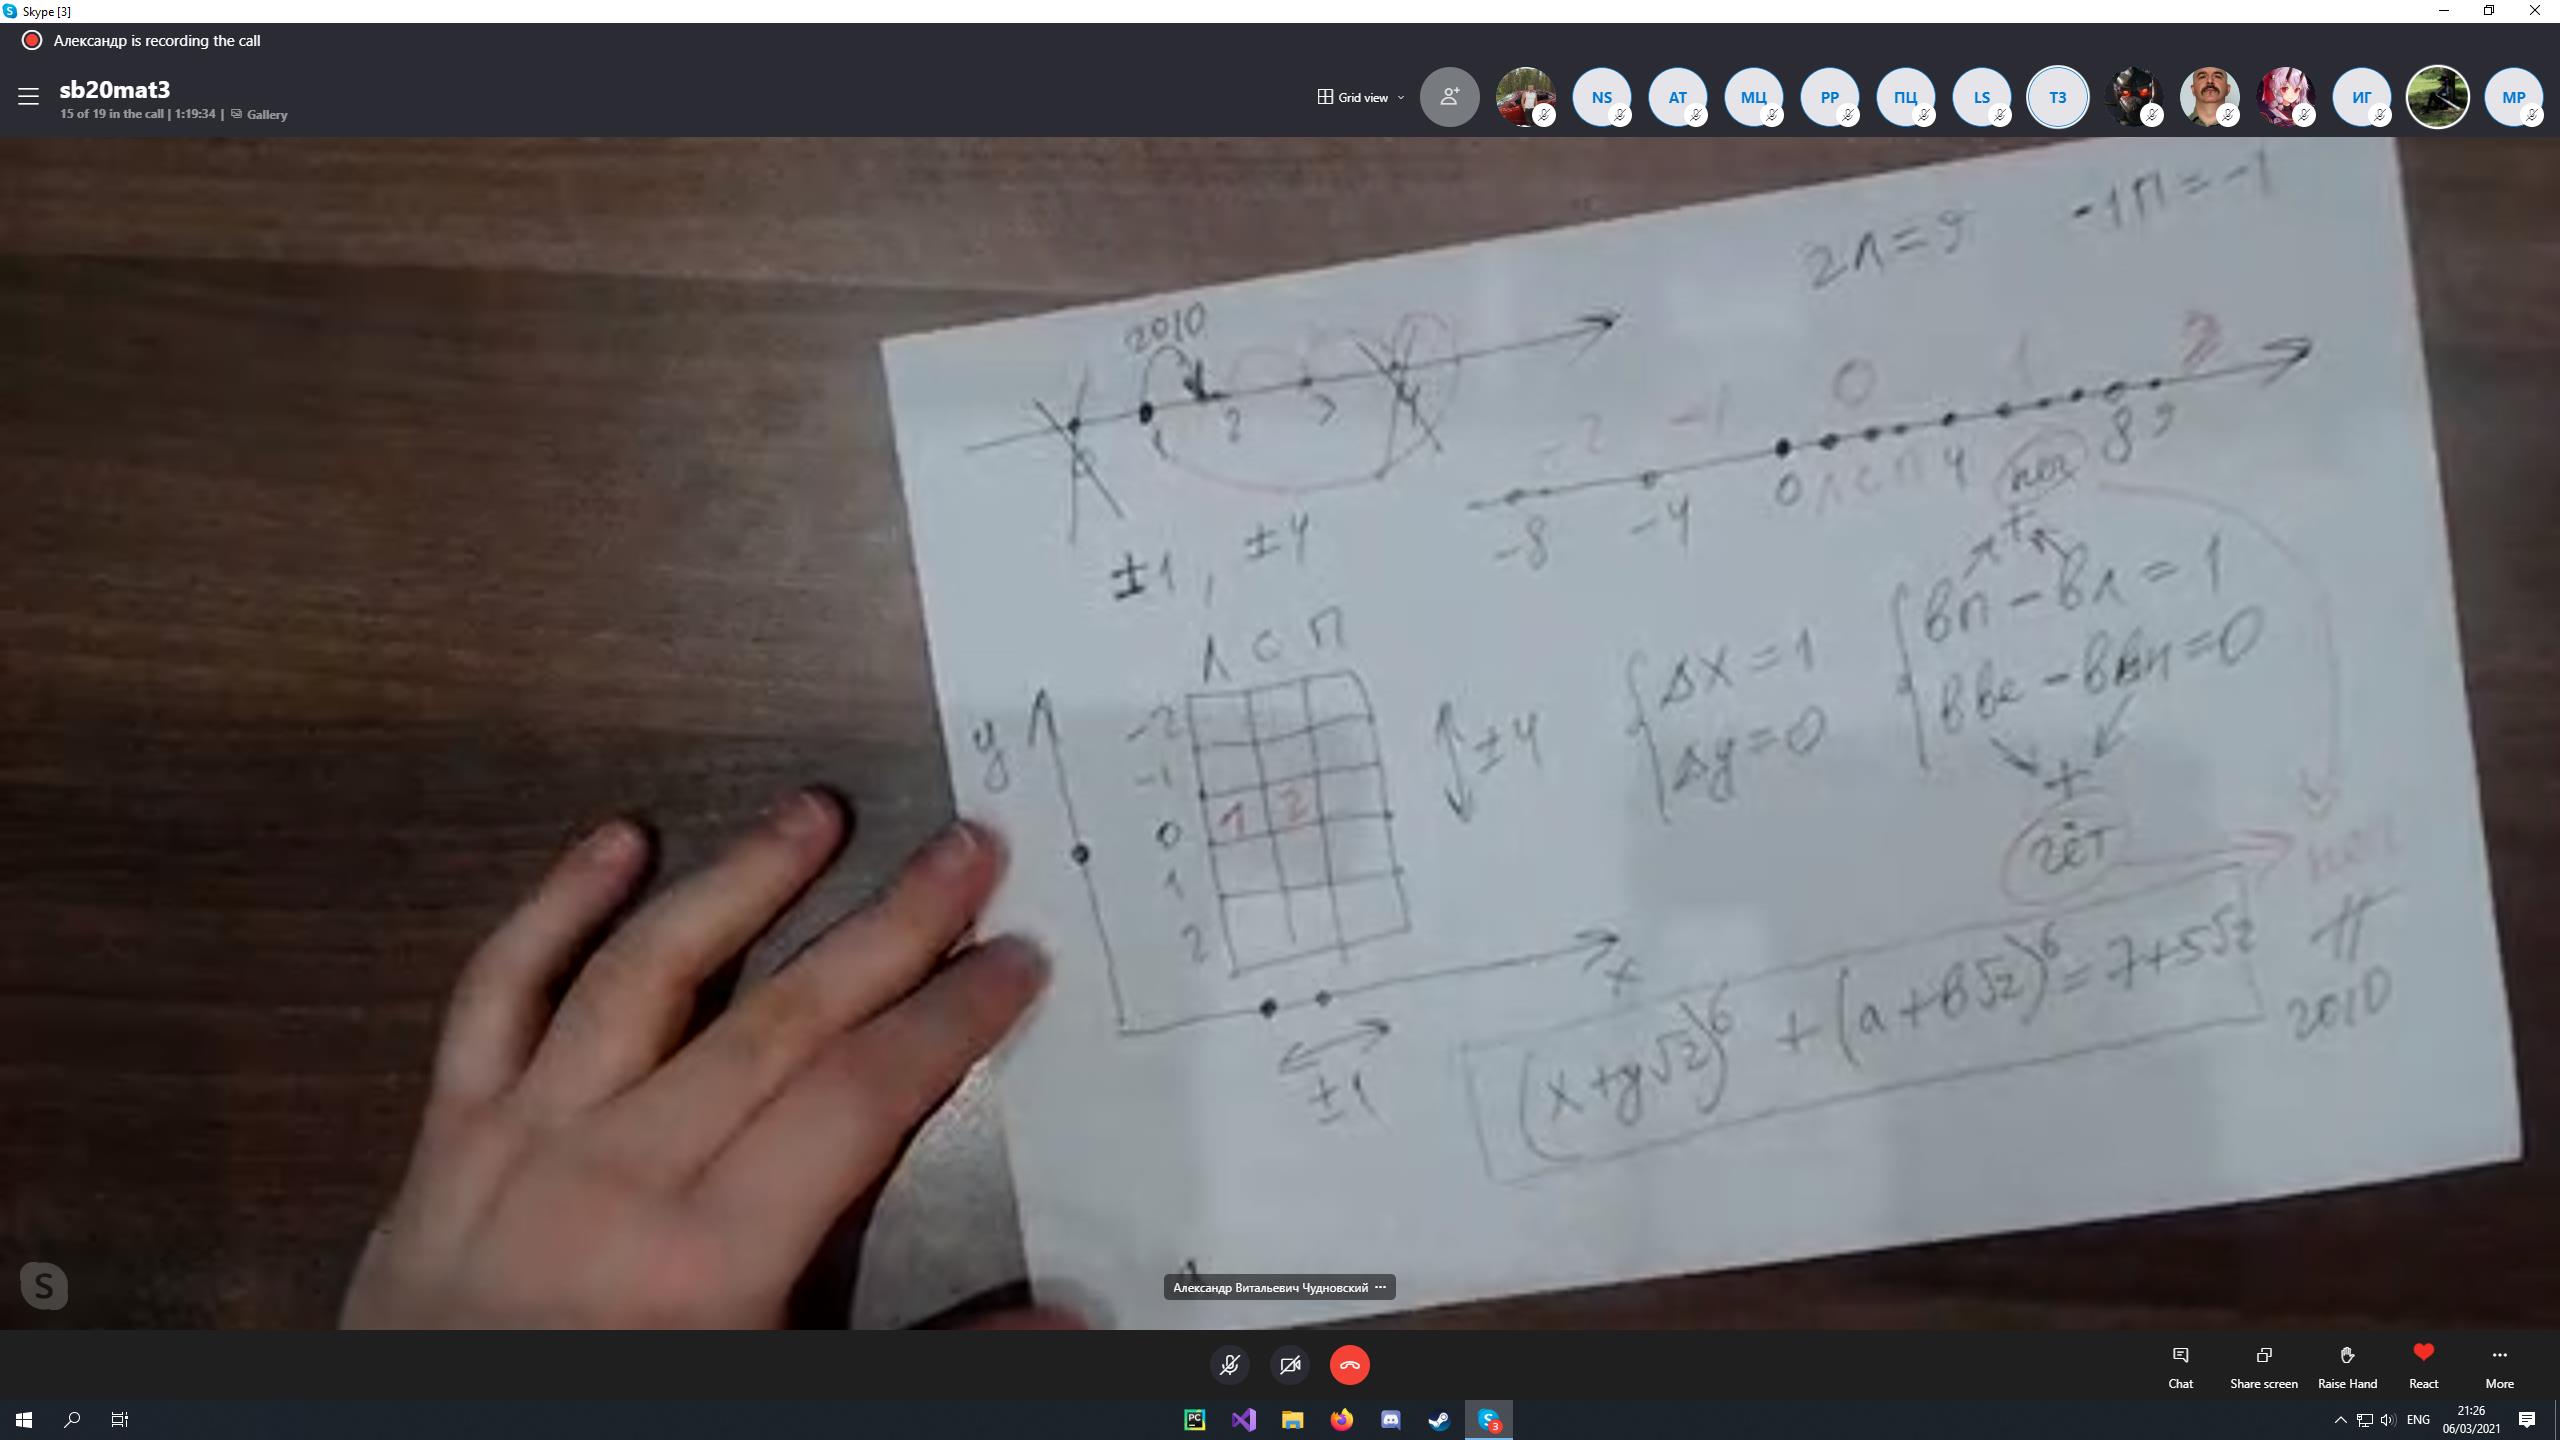 Skype [3]
Александр is recording the call
sb20mat3
15 of 19 in the call | 1:19:34 | Gallery
Grid view
NS
AT
МЦ
PP
ПЦ
LS
ТЗ
ИГ
MP
2Л=9
-1П=-1
2010
1 2 3 4
-2 -1 0 1 2
-8 -4 0 Л С П 4 8 9
±1, ±4
Л С П
y
-2
-1
0 1 2
1
2
±4
Δx=1
Δy=0
неч
+
вп - вл = 1
вве - ввн = 0
+
чёт
неч
2010
x
±1
(x+y√2)⁶ + (a+b√2)⁶ = 7+5√2
Александр Витальевич Чудновский
Chat
Share screen
Raise Hand
React
More
PC
ENG
21:26
06/03/2021